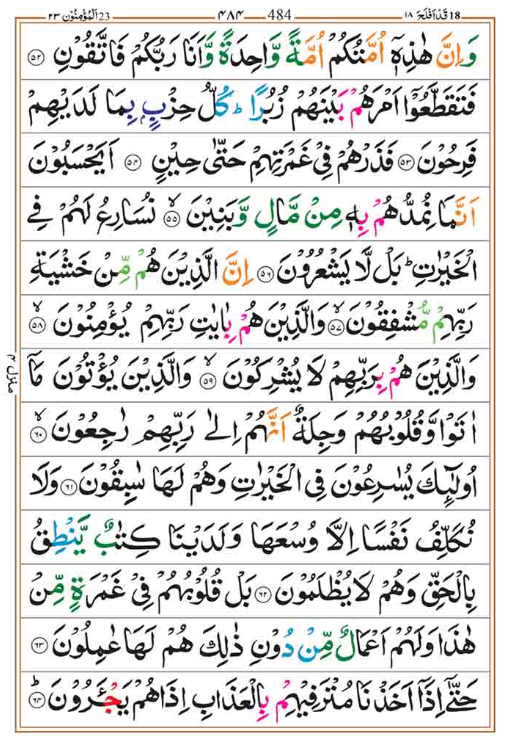 18 قَدْ اَفْلَحَ ١٨ 484 ۴۸۴ 23 اَلْمُؤْمِنُوْن ٢٣
وَاِنَّ هٰذِهٖٓ اُمَّتُكُمْ اُمَّةً وَّاحِدَةً وَّاَنَا رَبُّكُمْ فَاتَّقُوْنِ ۝۵۲
فَتَقَطَّعُوْٓا اَمْرَهُمْ بَيْنَهُمْ زُبُرًا ؕ كُلُّ حِزْبٍۭ بِمَا لَدَيْهِمْ
فَرِحُوْنَ ۝۵۳ فَذَرْهُمْ فِيْ غَمْرَتِهِمْ حَتّٰى حِيْنٍ ۝۵۴ اَيَحْسَبُوْنَ
اَنَّمَا نُمِدُّهُمْ بِهٖ مِنْ مَّالٍ وَّبَنِيْنَ ۙ۝۵۵ نُسَارِعُ لَهُمْ فِي
الْخَيْرٰتِ ؕ بَلْ لَّا يَشْعُرُوْنَ ۝۵۶ اِنَّ الَّذِيْنَ هُمْ مِّنْ خَشْيَةِ
رَبِّهِمْ مُّشْفِقُوْنَ ۙ۝۵۷ وَالَّذِيْنَ هُمْ بِاٰيٰتِ رَبِّهِمْ يُؤْمِنُوْنَ ۙ۝۵۸
وَالَّذِيْنَ هُمْ بِرَبِّهِمْ لَا يُشْرِكُوْنَ ۙ۝۵۹ وَالَّذِيْنَ يُؤْتُوْنَ مَآ
اٰتَوْا وَّقُلُوْبُهُمْ وَجِلَةٌ اَنَّهُمْ اِلٰى رَبِّهِمْ رٰجِعُوْنَ ۙ۝۶۰
اُولٰٓئِكَ يُسٰرِعُوْنَ فِي الْخَيْرٰتِ وَهُمْ لَهَا سٰبِقُوْنَ ۝۶۱ وَلَا
نُكَلِّفُ نَفْسًا اِلَّا وُسْعَهَا وَلَدَيْنَا كِتٰبٌ يَّنْطِقُ
بِالْحَقِّ وَهُمْ لَا يُظْلَمُوْنَ ۝۶۲ بَلْ قُلُوْبُهُمْ فِيْ غَمْرَةٍ مِّنْ
هٰذَا وَلَهُمْ اَعْمَالٌ مِّنْ دُوْنِ ذٰلِكَ هُمْ لَهَا عٰمِلُوْنَ ۝۶۳
حَتّٰٓى اِذَآ اَخَذْنَا مُتْرَفِيْهِمْ بِالْعَذَابِ اِذَا هُمْ يَجْـَٔرُوْنَ ؕ۝۶۴
منزل ۴